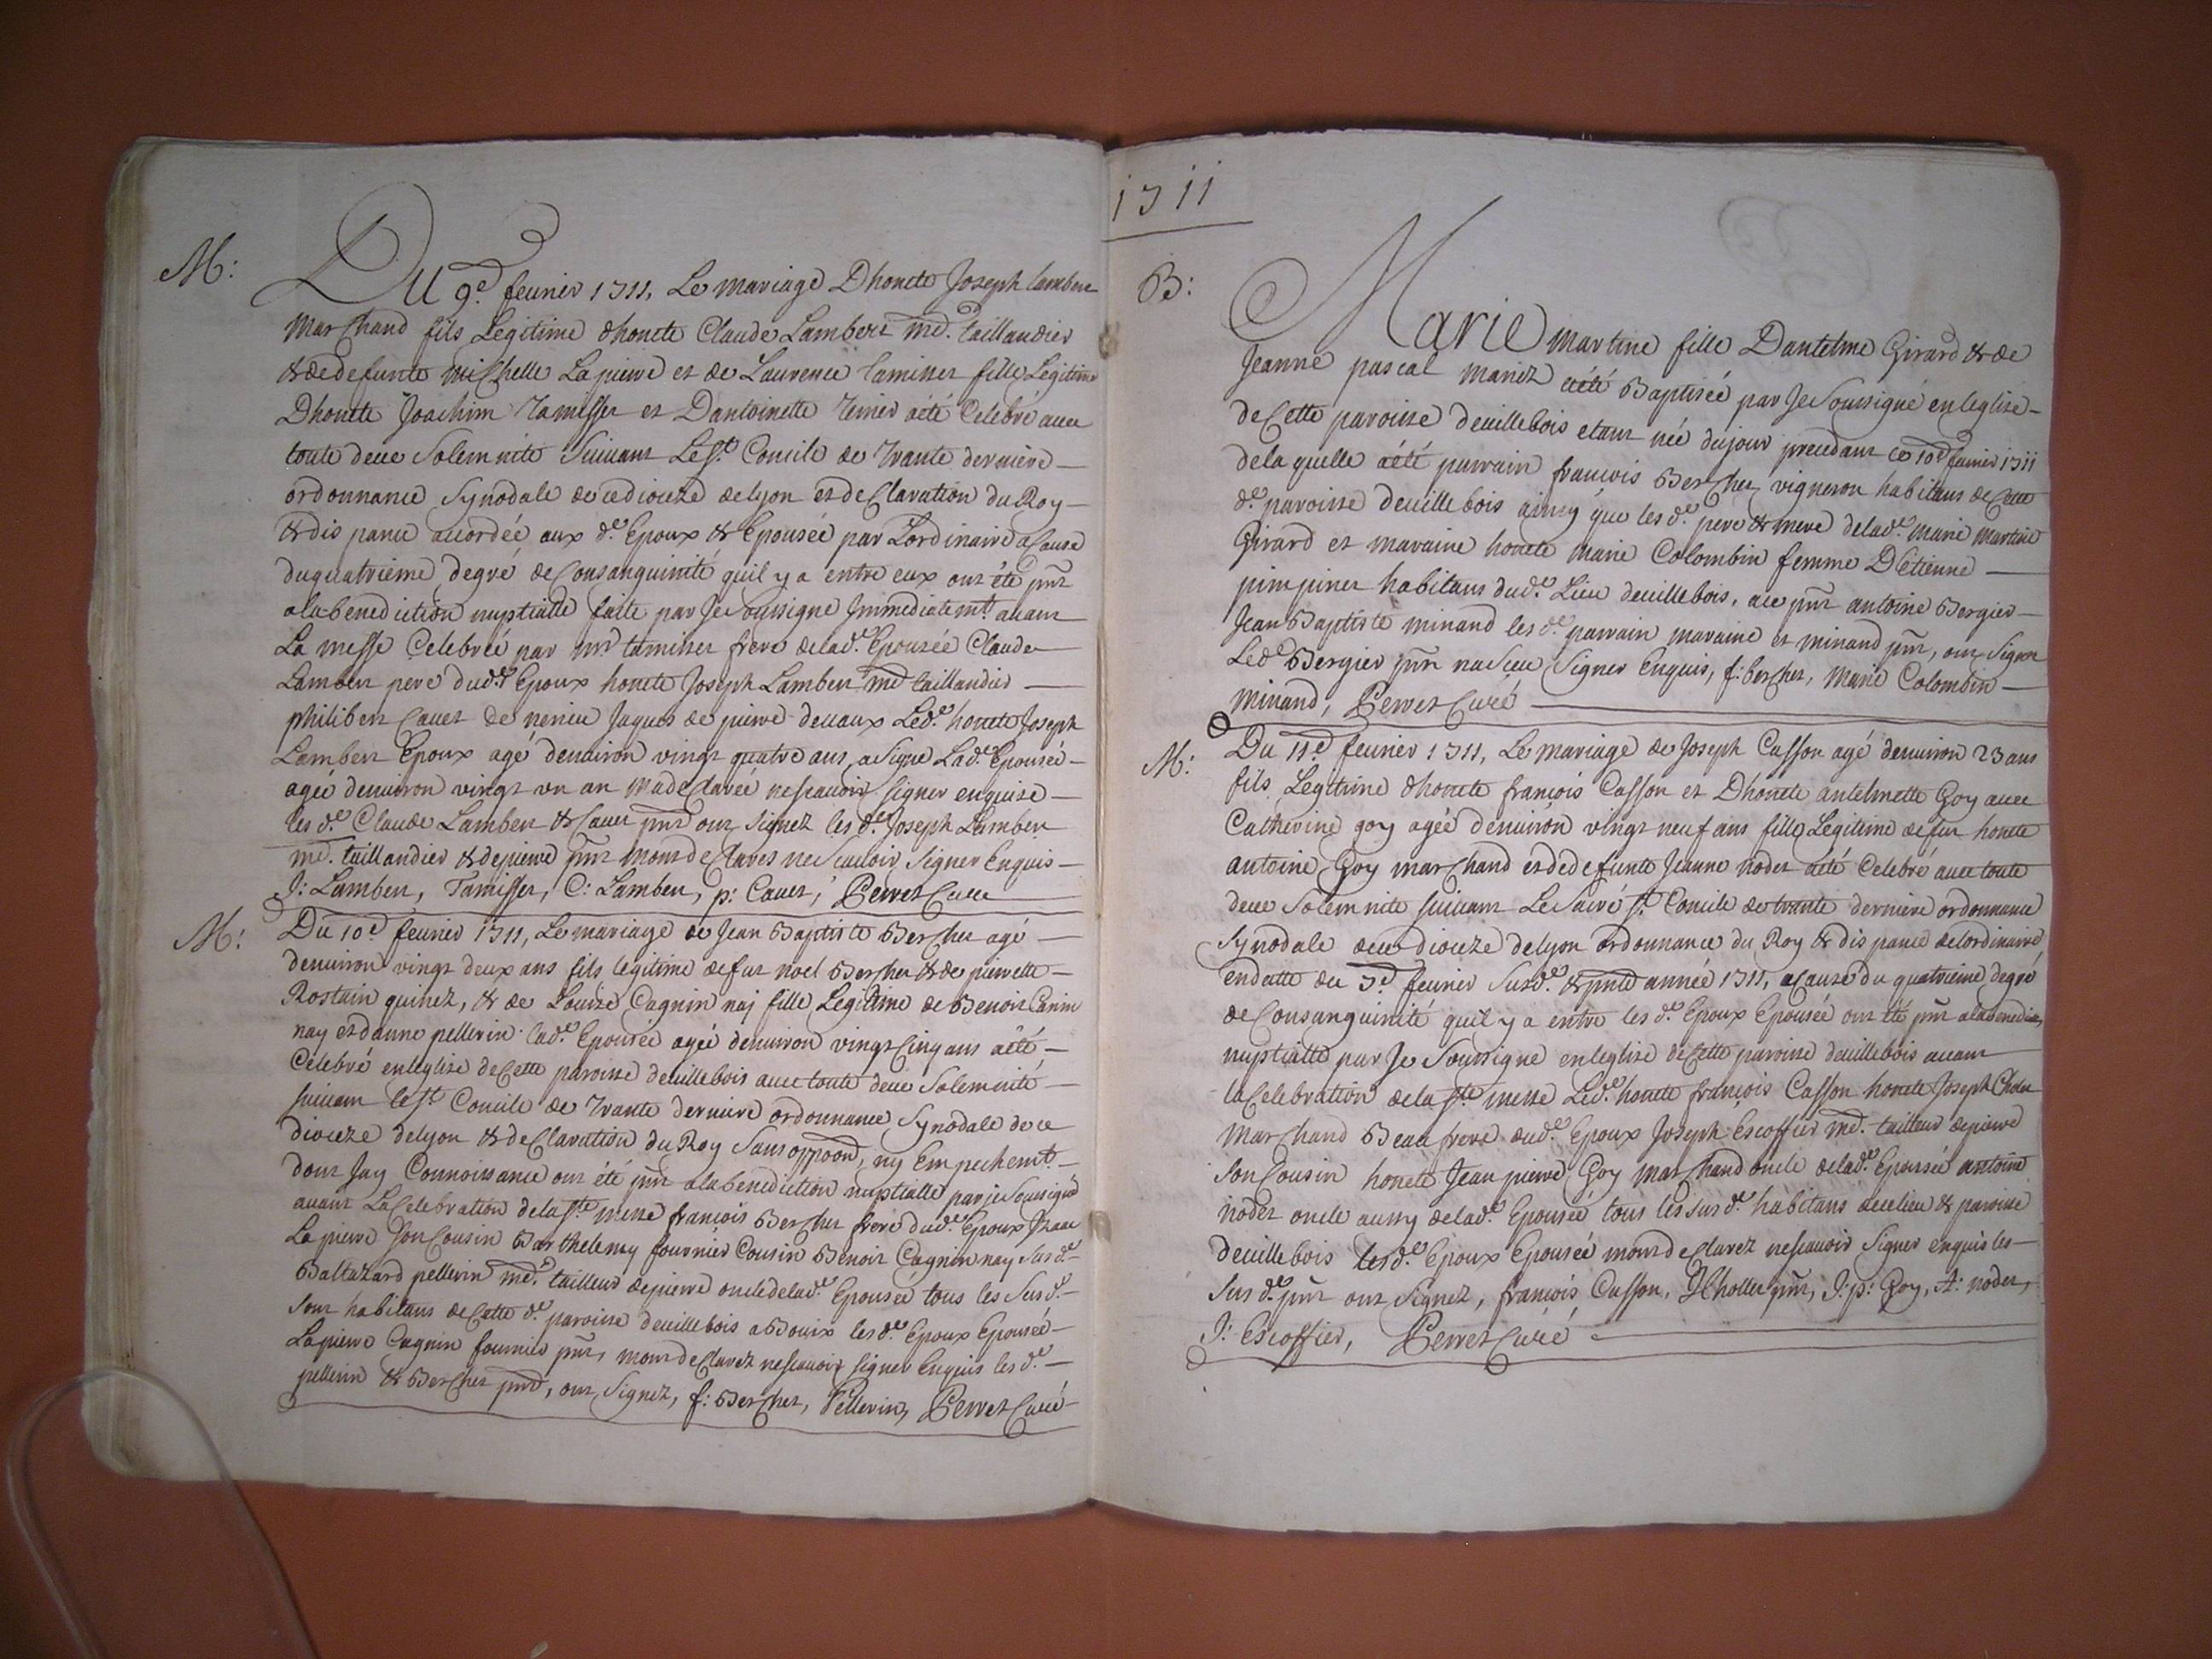 1711
M:
Du 9e. feurier 1711, Le mariage Dhonete Joseph Lambert
Marchand fils Legitime dhonete Claude Lambert md. taillandier
& de defunte michelle Lapierre et de Laurence tamisset fille Legitime
Dhonete Joachim Tamisset et Dantoinette aété Celebré auec
toute deue Solemnité Suiuant Le St. Concile de Trante derniere
ordonnance Synodale de ce dioceze de lyon et declaration du Roy
& dispance accordéé aux de. Epoux & Epouséé par Lordinaire a Cause
du quatrieme degré de Consanguinité quil y a entre eux ont été pnt
ala benediction nuptialle faite par Je soussigné Jmmediatemt. auant
La messe Celebréé par mr. tamisset frere de lade. Epouséé Claude
Lambert pere dude. Epoux honete Joseph Lambert md taillandier
philibert Cauet Jaques de pierre Lede. honete Joseph
Lambert Epoux agé denuiron vingt quatre ans, a Signé Lade. Epouséé
agéé denuiron vingt un an madeclaréé nescauoir Signer enquise
les de. Claude Lambert & Cauet pnt ont Signez les de. Joseph Lambert
md. taillandier & depierre pnt mont declarez ne Scauoir Signer Enquis
J: Lambert, Tamisset, C: Lambert, p: Cauet, Perret Curé
M:
Du 10e feurier 1711, Le mariage de Jean Baptiste Bercher agé
denuiron vingt deux ans fils legitime de fut noel Bercher & de pierrette
Rostain quinez, & de Louize Cagnin naj fille Legitime de Benoit Canin
nay et danne pellerin lade. Epouséé agéé denuiron vingt Cinq ans aété
Celebré en leglize de Cette paroisse deuillebois auec toute deue Solemnité
suiuant le St. Concile de Trante derniere ordonnance Synodale de ce
dioceze delyon & declaration du Roy Sans oppoon, ny Empechemt.
dont Jay Connoissance ont été pnt ala benediction nuptialle par je Soussigné
auant La Celebration dela Ste messe francois Bercher frere dude. Epoux
Lapierre Son Cousin Barthelemy fournier Cousin Benoit Cagnin nay Susde.
Baltazard pellerin md. tailleur depierre oncle delade. Epouséé tous les Susde.
sont habitans de Cette de. paroisse deuillebois a Bouix les de. Epoux Epouséé
Lapierre Cagnin fournier pnt, mont declarez nescauoir signer Enquis les de.
pellerin & Bercher pnt, ont Signez, f: Bercher, Pellerin, Perret Curé
B:
Marie martine fille Dantelme Girard & de
Jeanne pascal mariez aété Baptiséé par Je Soussigné en leglise
de Cette paroisse deuillebois etant néé dujour precedant ce 10e feurier 1711
dela quelle aété parrain francois Bercher vigneron habitant de Cette
de. paroisse deuillebois ainsy que les de. pere & mere delade. marie martine
Girard et maraine honete marie Colombin femme Détienne
pinpinet habitans dude. Lieu deuillebois, ace pnt antoine Bergier
Jean Baptiste minand les de. parrain maraine et minand pnt, ont Signez
Lede Bergier pnt na Sceu Signer Enquis, f: bercher, Marie Colombin
minand, Perret Curé
M:
Du 11e feurier 1711, Le mariage de Joseph Casson agé denuiron 23 ans
fils Legitime dhonete françois Casson et Dhonete antelmette Goy auec
Catherine goy agéé denuiron vingt neuf ans fille Legitime de fut honete
antoine Goy marchand et de defunte Jeanne nodet aété Celebré auec toute
deue Solemnité suiuant Le Sacré St. Concile de trante derniere ordonnance
Synodale dece dioceze delyon ordonnance du Roy & dispance delordinaire
endatte du 3e feurier Susde. & pnte année 1711, a Cause du quatrieme degré
de Consanguinité quil y a entre les de. Epoux Epouséé ont été pnt ala benediction
nuptialle par Je Soussigné enleglise de Cette paroisse deuillebois auant
la Celebration dela Ste messe Lede. honete françois Casson honete Joseph
Marchand Beau frere dude. Epoux Joseph Escoffier md. tailleur depierre
son Cousin honete Jean pierre Goy marchand oncle delade. Epouséé antoine
nodet oncle aussy delade. Epouséé tous les susde. habitans dece lieu & paroisse
deuillebois les de. Epoux Epouséé mont declarez nescauoir Signer enquis les
sus de. pnt ont Signez, françois Casson, J Chollet pnt, J: p: Goy, A: nodet,
J: Escoffier, Perret Curé